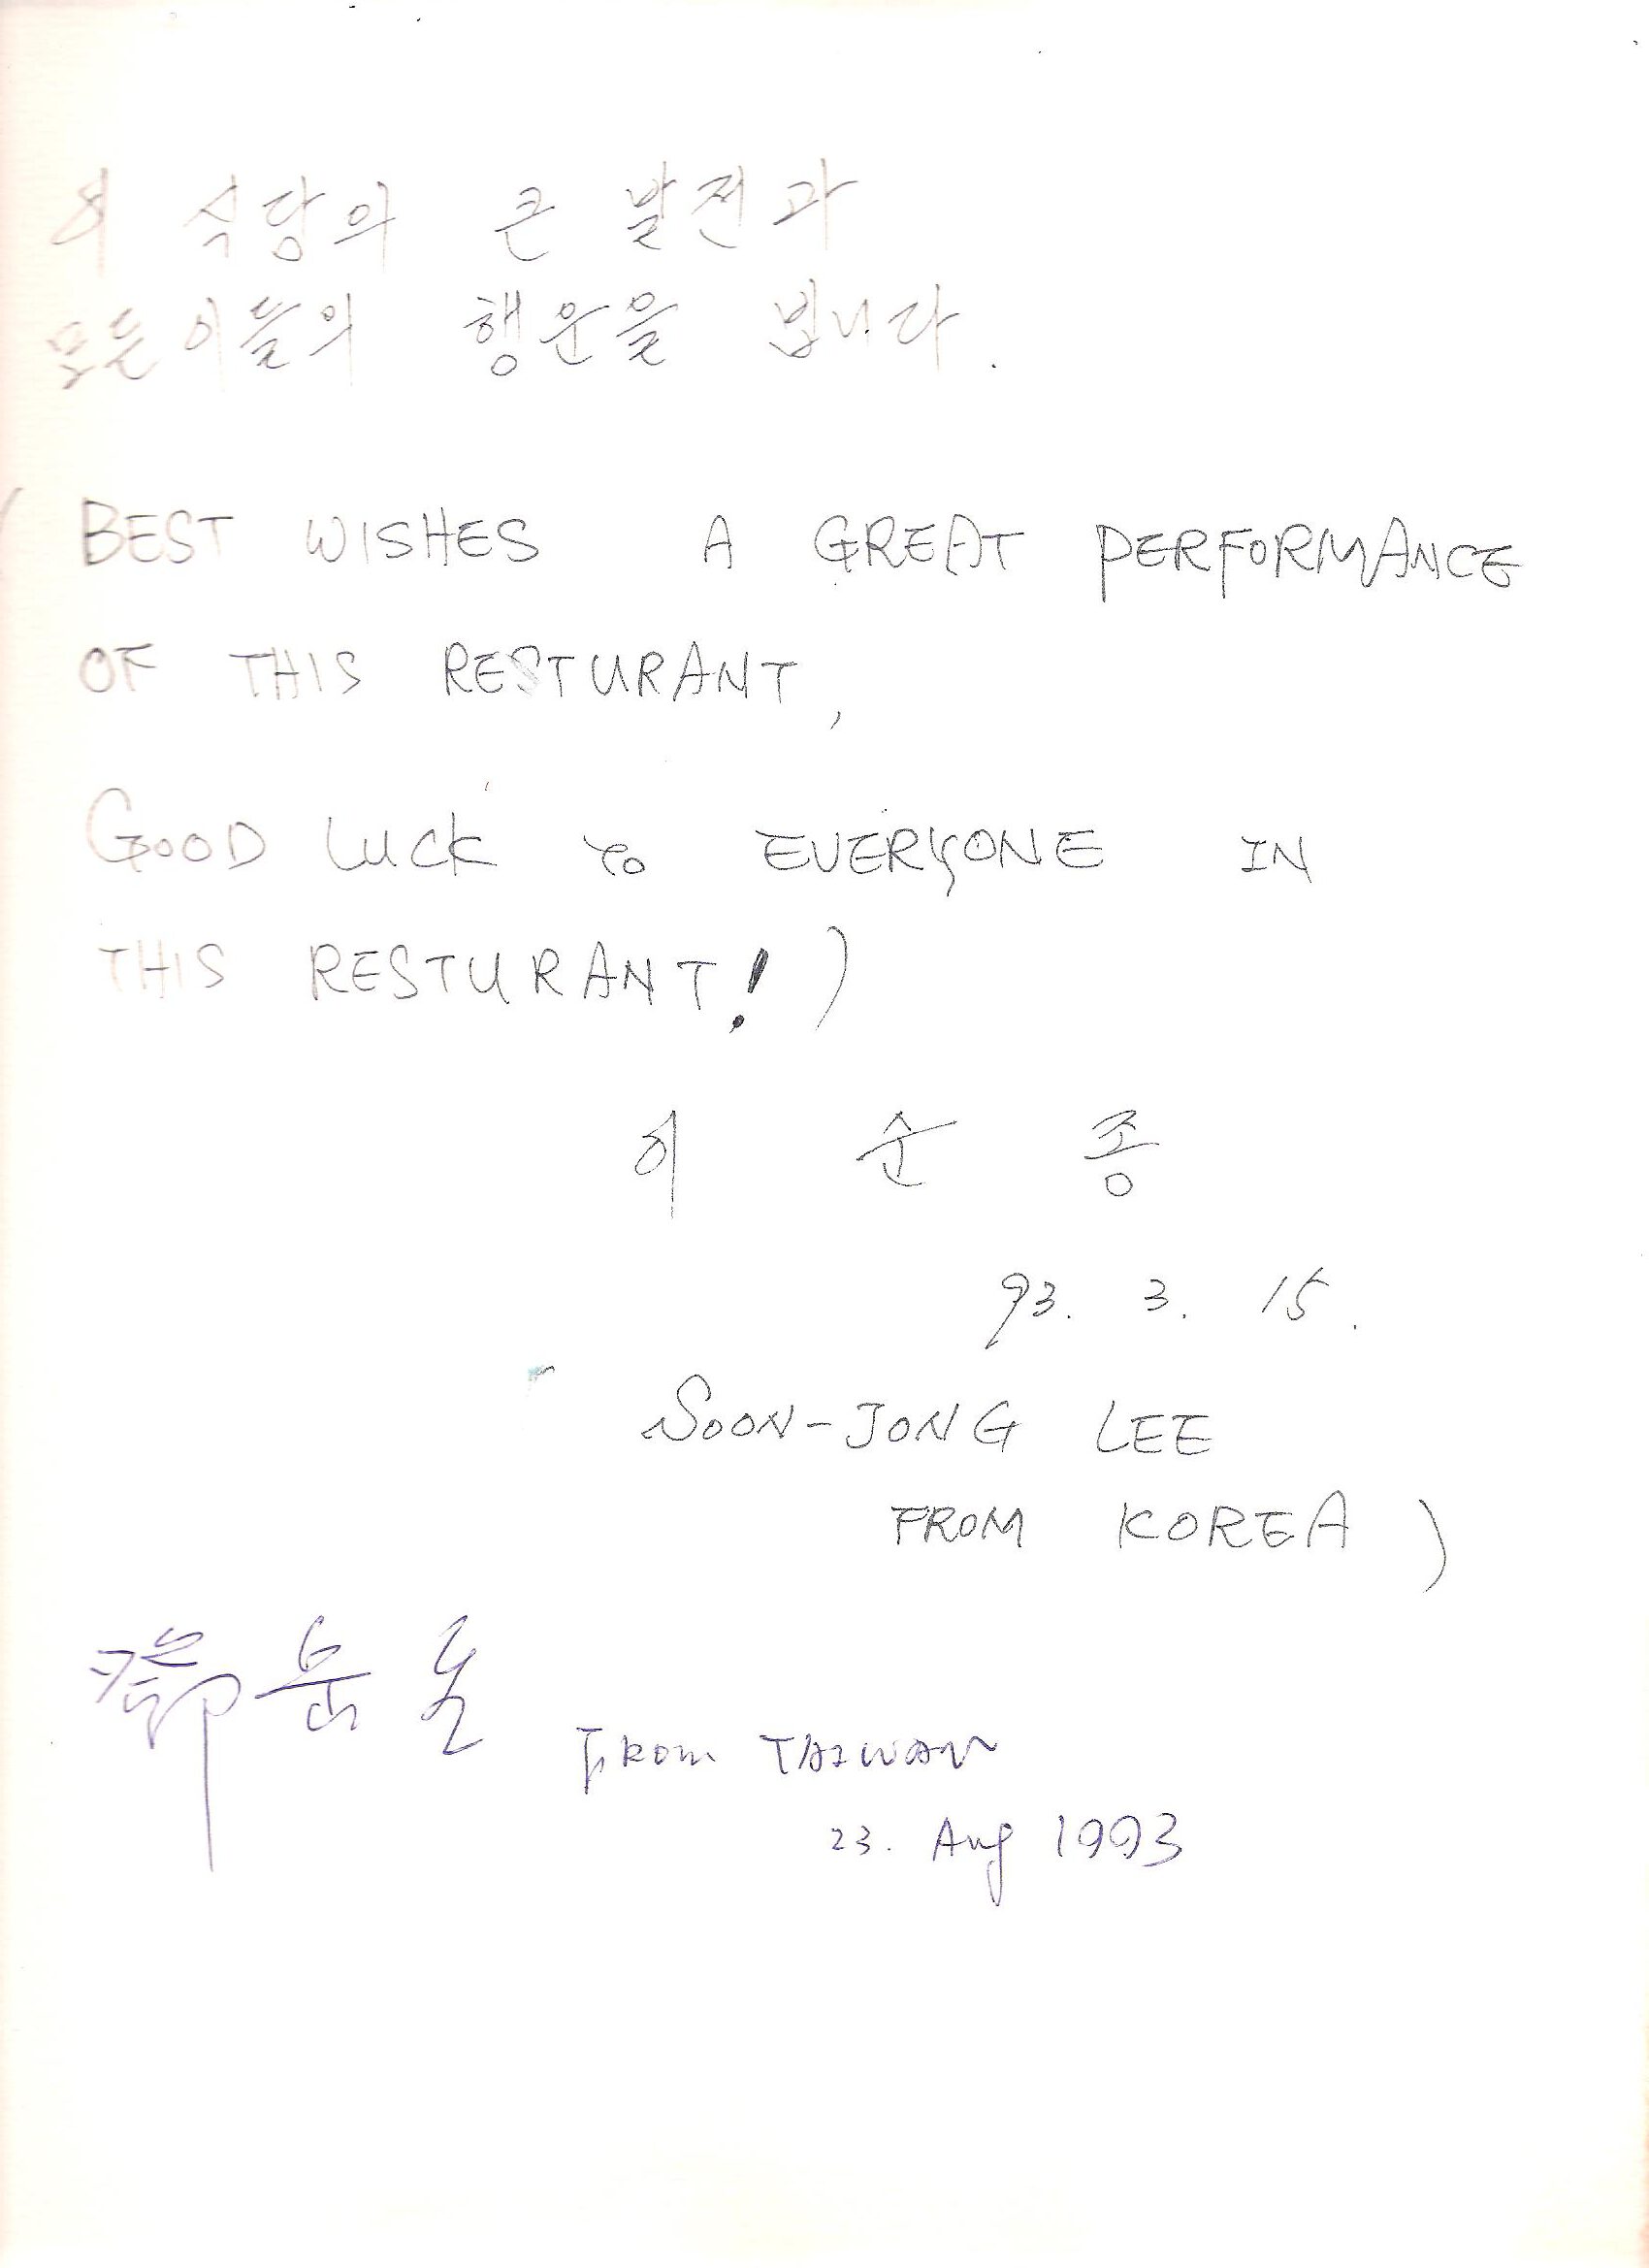 이 식당의 큰 발전과
모든이들의 행운을 빕니다.
( BEST WISHES A GREAT PERFORMANCE
OF THIS RESTURANT,
GOOD LUCK to EVERYONE IN
THIS RESTURANT! )
이 순 종
93. 3. 15.
SOON-JONG LEE
FROM KOREA )
FROM TAIWAN
23. Aug 1993